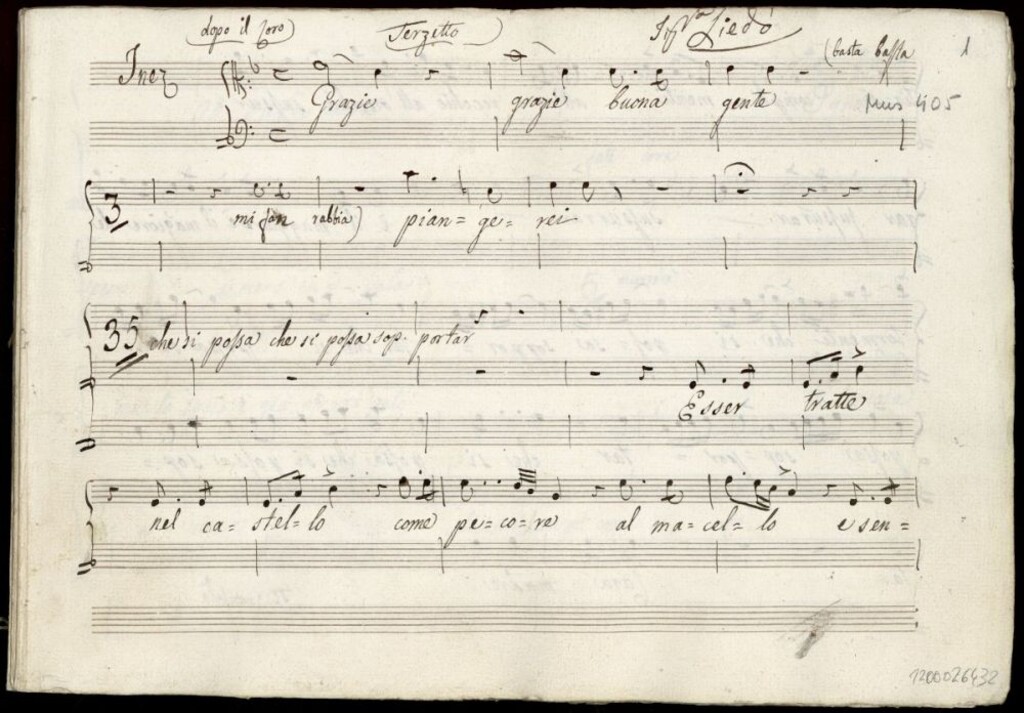 dopo il Coro) Terzetto Sig.ra Liedò
Inez (basta basta 1
Grazie grazie buona gente Mus 405
3 mi fan rabbia) pian= ge= rei
35 che si possa che si possa sop- portar
Esser tratte
nel ca= stel= lo come pe= co= re al ma= cel= lo e sen=
1200026432